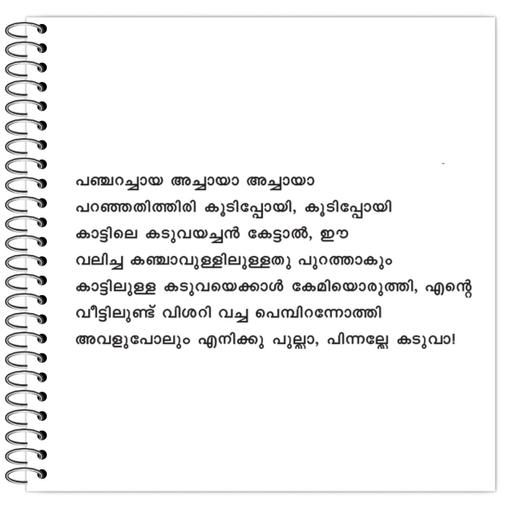 പഞ്ചറച്ചായ അച്ചായാ അച്ചായാ
പറഞ്ഞതിത്തിരി കൂടിപ്പോയി, കൂടിപ്പോയി
കാട്ടിലെ കടുവയച്ചൻ കേട്ടാൽ, ഈ
വലിച്ച കഞ്ചാവുള്ളിലുള്ളതു പുറത്താകും
കാട്ടിലുള്ള കടുവയെക്കാൾ കേമിയൊരുത്തി, എന്റെ
വീട്ടിലുണ്ട് വിശറി വച്ച പെമ്പിറന്നോത്തി
അവളുപോലും എനിക്കു പുല്ലാ, പിന്നല്ലേ കടുവാ!